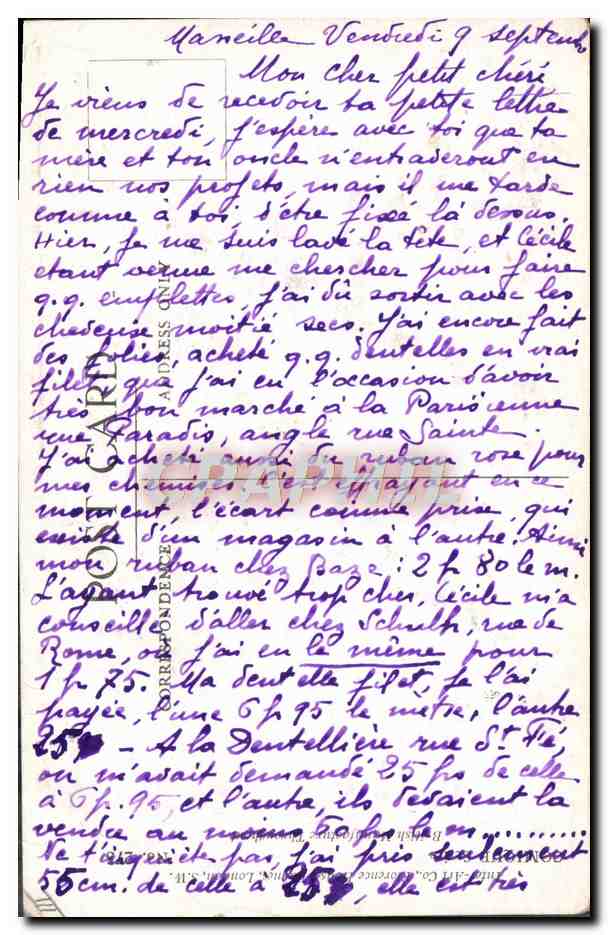 Marseille Vendredi 9 septembre
Mon cher petit chéri
Je viens de recevoir ta petite lettre
de mercredi, j'espère avec toi que ta
mère et ton oncle n'entraveront en
rien nos projets, mais il me tarde
comme à toi d'être fixée là dessus.
Hier, je me suis lavé la tête, et Cécile
étant venue me chercher pour faire
q.q. emplettes, j'ai dû sortir avec les
cheveux moitié secs. J'ai encore fait
des folies, acheté q.q. dentelles en vrai
filet, que j'ai eu l'occasion d'avoir
très bon marché à la Parisienne
rue Paradis, angle rue Sainte.
J'ai acheté aussi du ruban rose pour
mes chemises. C'est effrayant en ce
moment, l'écart comme prise, qui
existe d'un magasin à l'autre. Ainsi
mon ruban chez Baze : 2 fr 80 le m.
L'ayant trouvé trop cher, Cécile m'a
conseillé d'aller chez Schultz, rue de
Rome, où j'ai eu le même pour
1 fr, 75. Ma dentelle filet, je l'ai
payée, l'une 6 fr 95 le mètre, l'autre
25 fr - A la Dentellière rue St. Fé,
on m'avait demandé 25 frs de celle
à 6 fr. 95, et l'autre, ils devaient la
vendre au moins 50 fr le m..........
Ne t'inquiète pas, j'ai pris seulement
55 cm. de celle à 25 fr, elle est très
POST CARD
CORRESPONDENCE
ADDRESS ONLY
CRAPHIL
COMIQUE
No. 278
Inter-Art Co., Florence House, Barnes, London, S.W.
British Manufacture Throughout